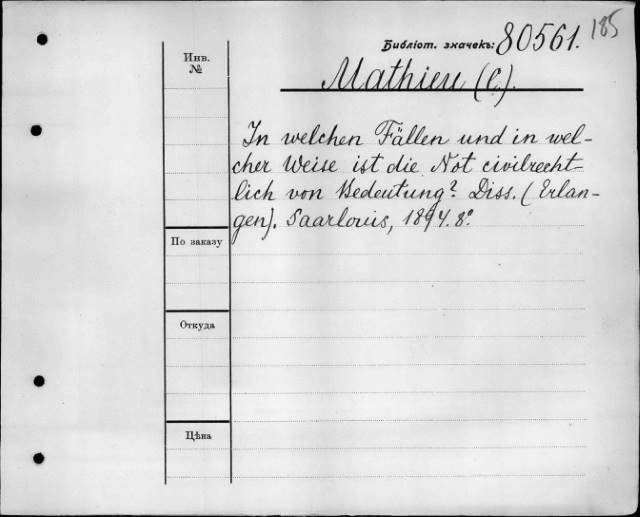 185
Библіот. значекъ: 80561.
Инв. №
Mathieu (C.).
In welchen Fällen und in wel-
cher Weise ist die Not civilrecht-
lich von Bedeutung? Diss. (Erlan-
gen). Saarlouis, 1894. 8º.
По заказу
Откуда
Цѣна